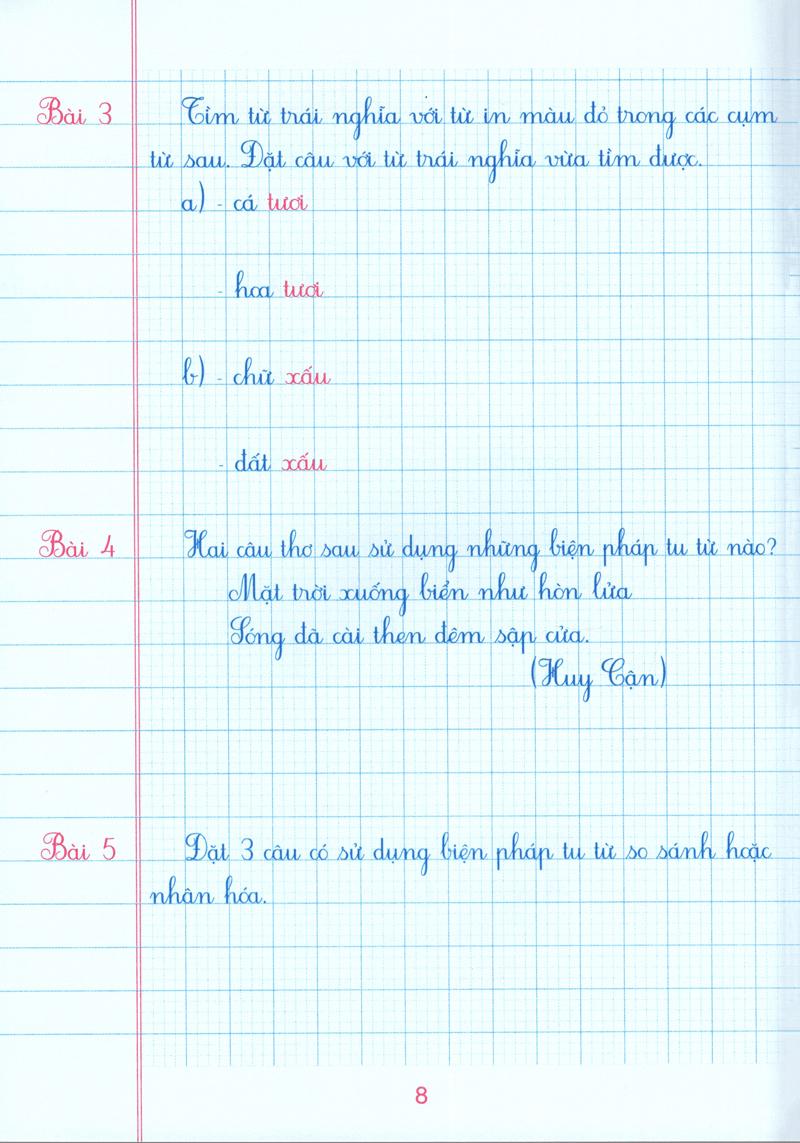 Bài 3 Tìm từ trái nghĩa với từ in màu đỏ trong các cụm
từ sau. Đặt câu với từ trái nghĩa vừa tìm được.
a) - cá tươi
- hoa tươi
b) - chữ xấu
- đất xấu
Bài 4 Hai câu thơ sau sử dụng những biện pháp tu từ nào?
Mặt trời xuống biển như hòn lửa
Sóng đã cài then đêm sập cửa.
(Huy Cận)
Bài 5 Đặt 3 câu có sử dụng biện pháp tu từ so sánh hoặc
nhân hóa.
8